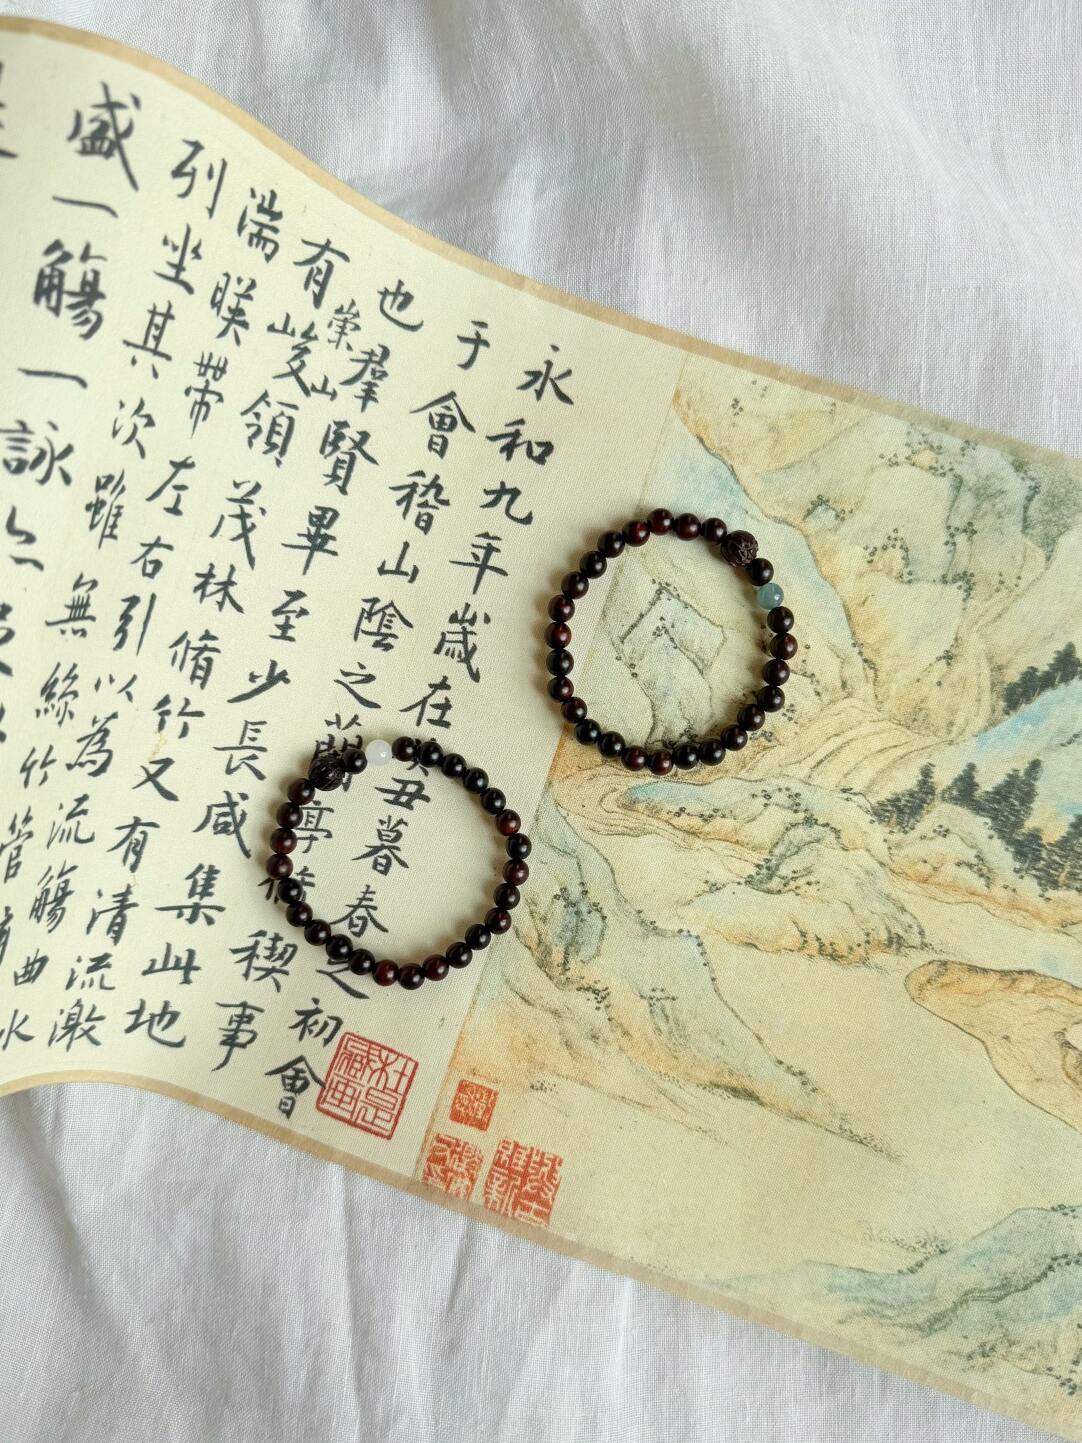 永和九年歲在癸丑暮春之初會
于會稽山陰之蘭亭脩稧事
也羣賢畢至少長咸集此地
有崇山峻領茂林脩竹又有清流激
湍暎帶左右引以為流觴曲水
列坐其次雖無絲竹管
盛一觴一詠亦